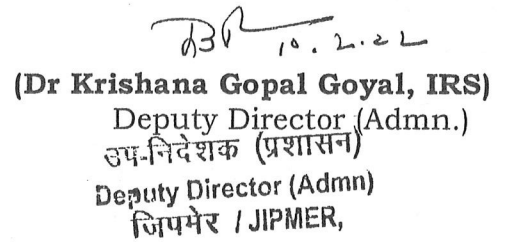 10.2.22
(Dr Krishana Gopal Goyal, IRS)
Deputy Director (Admn.)
उप-निदेशक (प्रशासन)
Deputy Director (Admn)
जिपमेर / JIPMER,